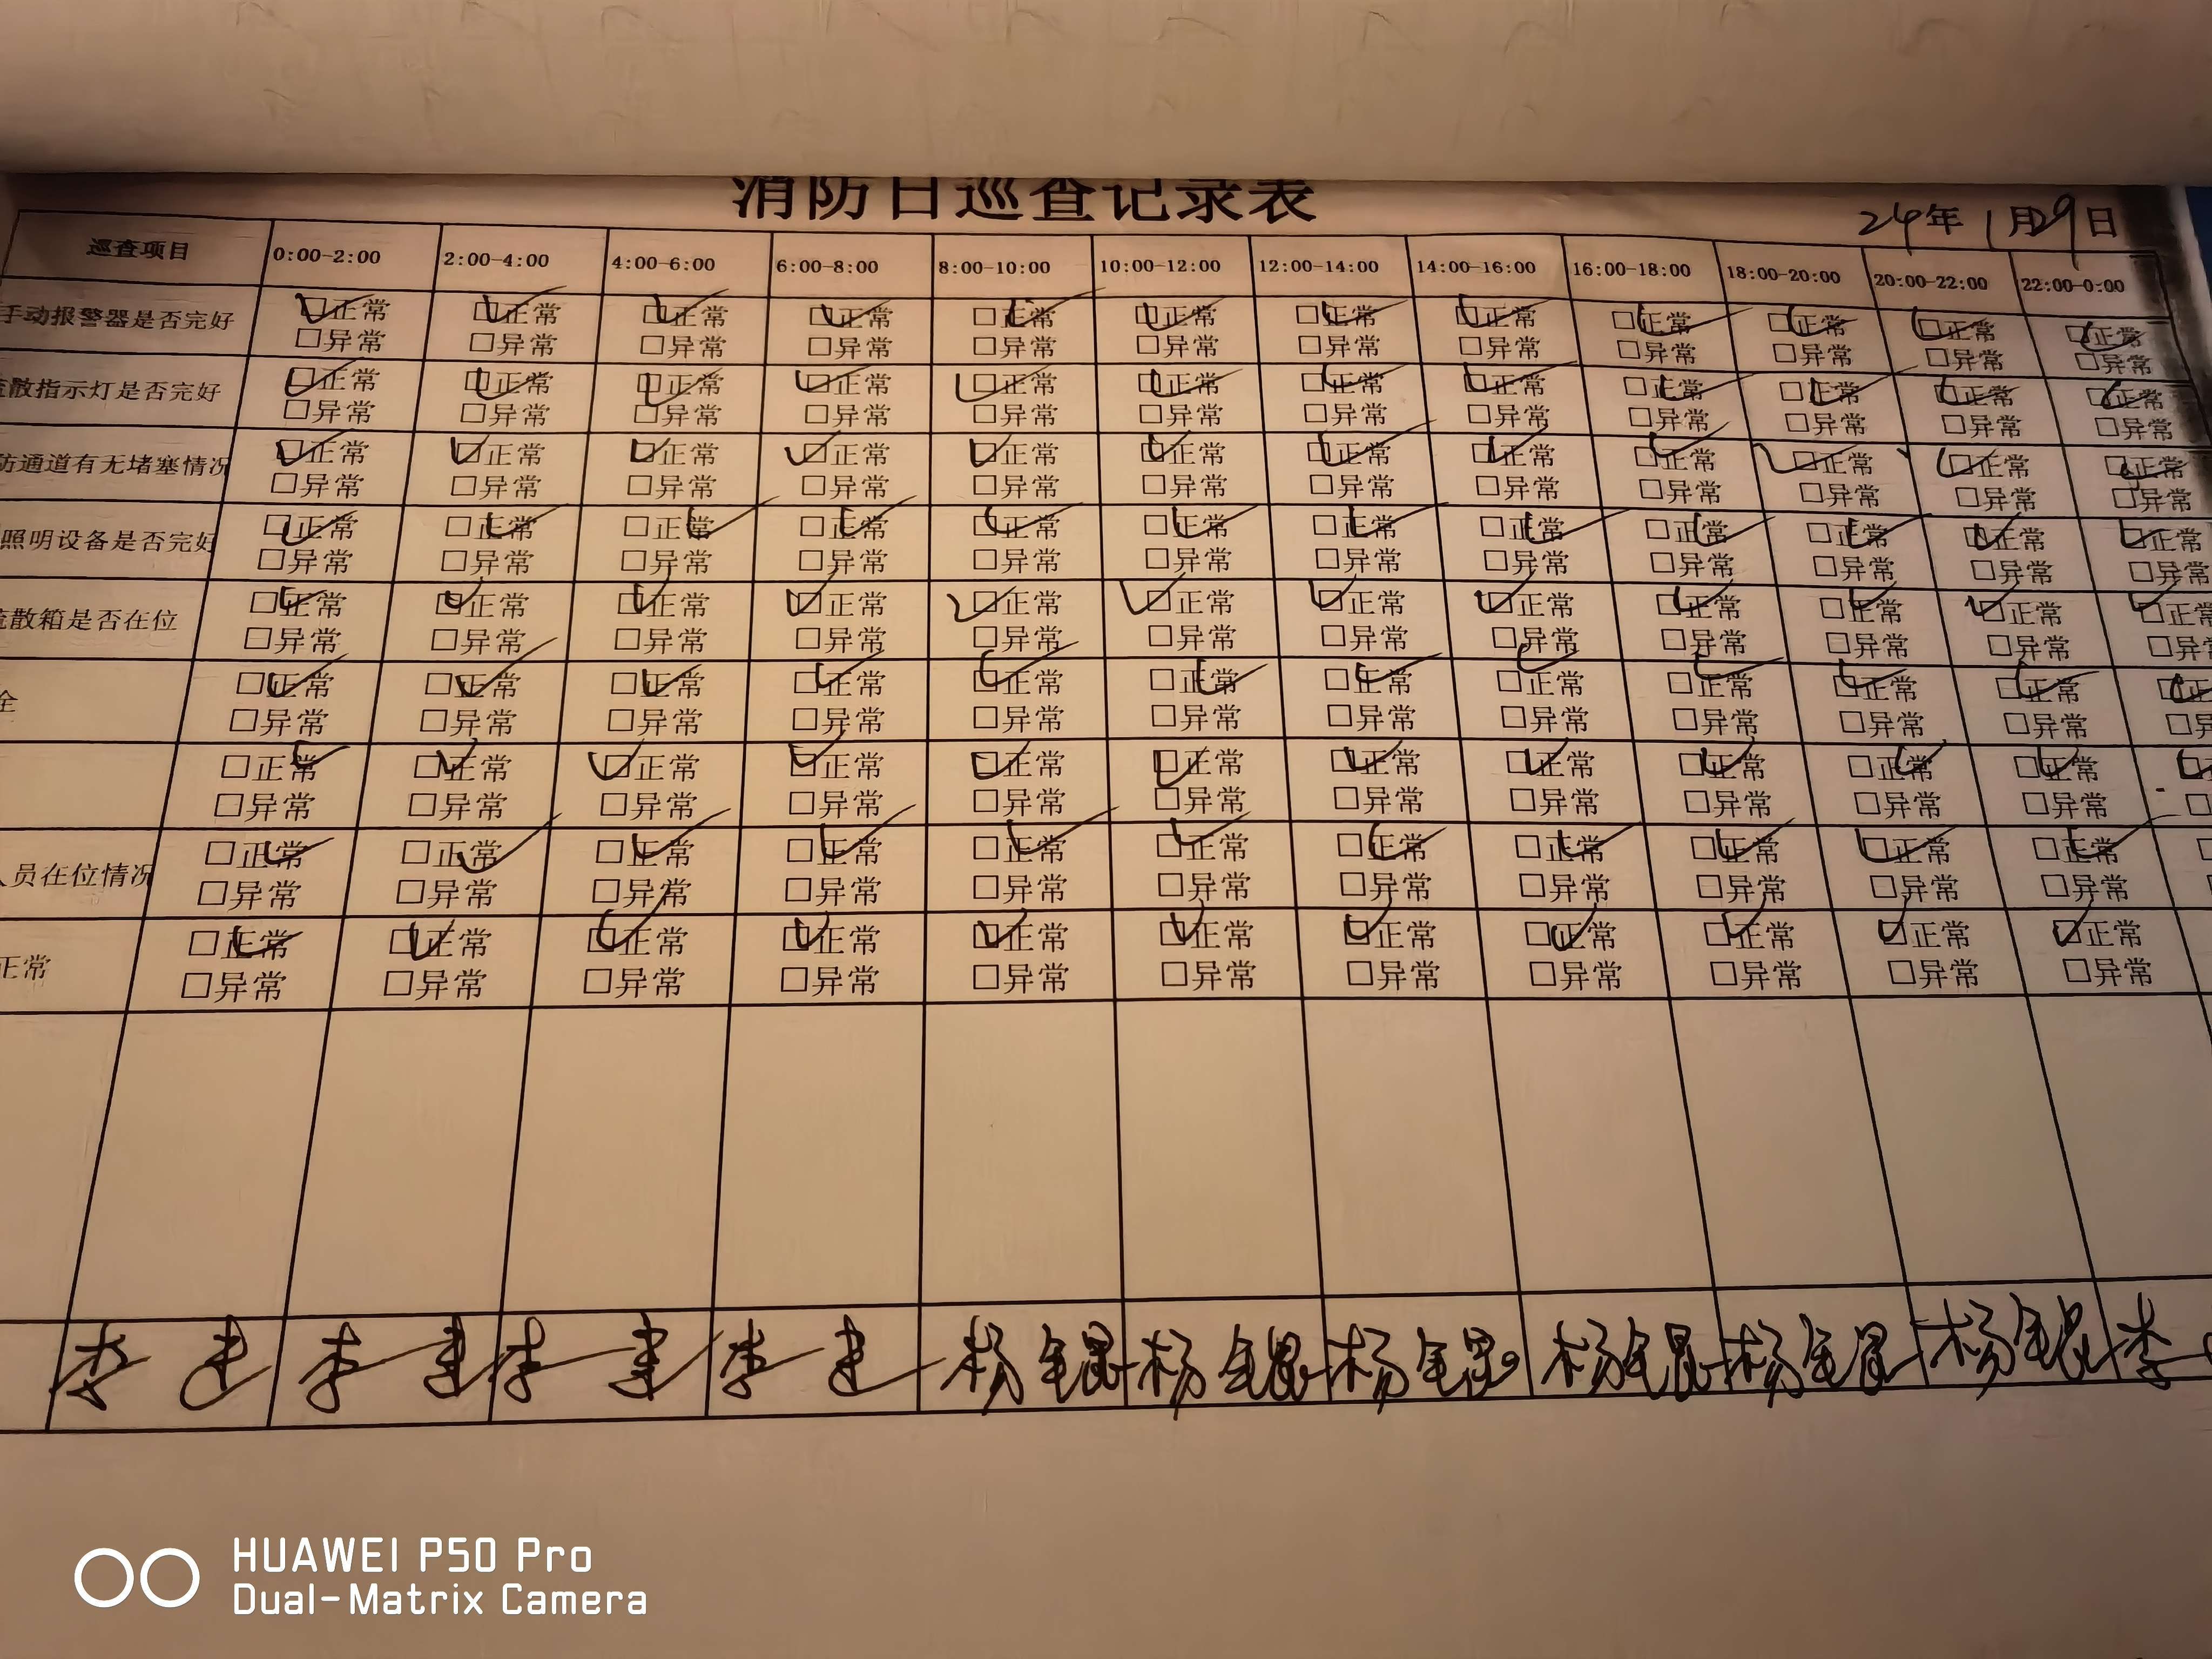 消防日巡查记录表
24年1月29日
巡查项目 0:00-2:00 2:00-4:00 4:00-6:00 6:00-8:00 8:00-10:00 10:00-12:00 12:00-14:00 14:00-16:00 16:00-18:00 18:00-20:00 20:00-22:00 22:00-0:00
手动报警器是否完好 ☑正常 ☑正常 ☑正常 ☑正常 ☑正常 ☑正常 ☑正常 ☑正常 ☑正常 ☑正常 ☑正常 ☑正常
□异常 □异常 □异常 □异常 □异常 □异常 □异常 □异常 □异常 □异常 □异常 □异常
散指示灯是否完好 ☑正常 ☑正常 ☑正常 ☑正常 ☑正常 ☑正常 ☑正常 ☑正常 ☑正常 ☑正常 ☑正常 ☑正常
□异常 □异常 □异常 □异常 □异常 □异常 □异常 □异常 □异常 □异常 □异常 □异常
防通道有无堵塞情况 ☑正常 ☑正常 ☑正常 ☑正常 ☑正常 ☑正常 ☑正常 ☑正常 ☑正常 ☑正常 ☑正常 ☑正常
□异常 □异常 □异常 □异常 □异常 □异常 □异常 □异常 □异常 □异常 □异常 □异常
照明设备是否完好 ☑正常 ☑正常 ☑正常 ☑正常 ☑正常 ☑正常 ☑正常 ☑正常 ☑正常 ☑正常 ☑正常 ☑正常
□异常 □异常 □异常 □异常 □异常 □异常 □异常 □异常 □异常 □异常 □异常 □异常
散箱是否在位 ☑正常 ☑正常 ☑正常 ☑正常 ☑正常 ☑正常 ☑正常 ☑正常 ☑正常 ☑正常 ☑正常 ☑正常
□异常 □异常 □异常 □异常 □异常 □异常 □异常 □异常 □异常 □异常 □异常 □异
全 ☑正常 ☑正常 ☑正常 ☑正常 ☑正常 ☑正常 ☑正常 ☑正常 ☑正常 ☑正常 ☑正常 ☑正
□异常 □异常 □异常 □异常 □异常 □异常 □异常 □异常 □异常 □异常 □异常 □异
☑正常 ☑正常 ☑正常 ☑正常 ☑正常 ☑正常 ☑正常 ☑正常 ☑正常 ☑正常 ☑正常 ☑
□异常 □异常 □异常 □异常 □异常 □异常 □异常 □异常 □异常 □异常 □异常 □
人员在位情况 ☑正常 ☑正常 ☑正常 ☑正常 ☑正常 ☑正常 ☑正常 ☑正常 ☑正常 ☑正常 ☑正常
□异常 □异常 □异常 □异常 □异常 □异常 □异常 □异常 □异常 □异常 □异常
正常 ☑正常 ☑正常 ☑正常 ☑正常 ☑正常 ☑正常 ☑正常 ☑正常 ☑正常 ☑正常 ☑正常
□异常 □异常 □异常 □异常 □异常 □异常 □异常 □异常 □异常 □异常 □异常
李建 李建 李建 李建 杨 杨 杨 杨 杨 杨 李
HUAWEI P50 Pro
Dual-Matrix Camera